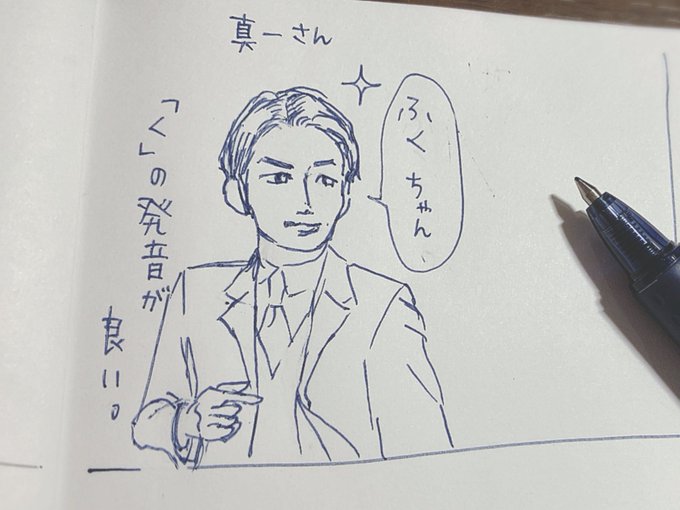 真一さん
ふくちゃん
「く」の発音が
良い。